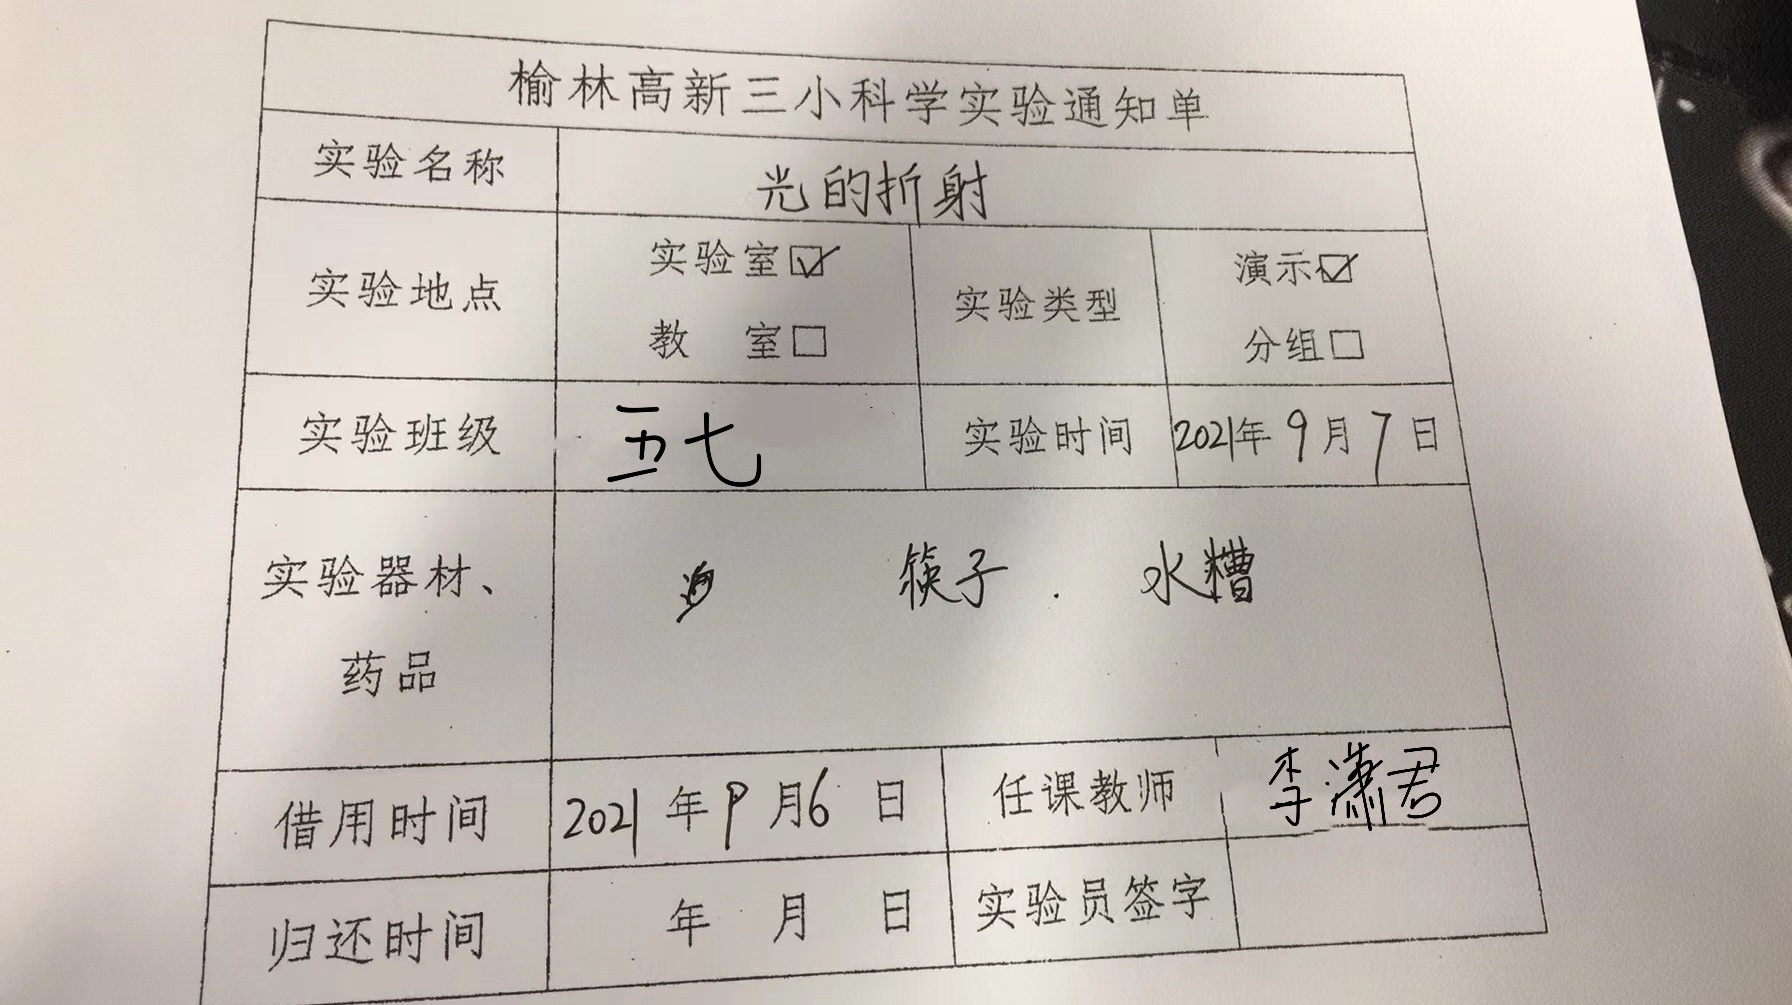 榆林高新三小科学实验通知单
实验名称 光的折射
实验地点 实验室☑ 教 室□ 实验类型 演示☑ 分组□
实验班级 五七 实验时间 2021年9月7日
实验器材、药品 筷子. 水糟
借用时间 2021年9月6日 任课教师 李潇君
归还时间 年 月 日 实验员签字